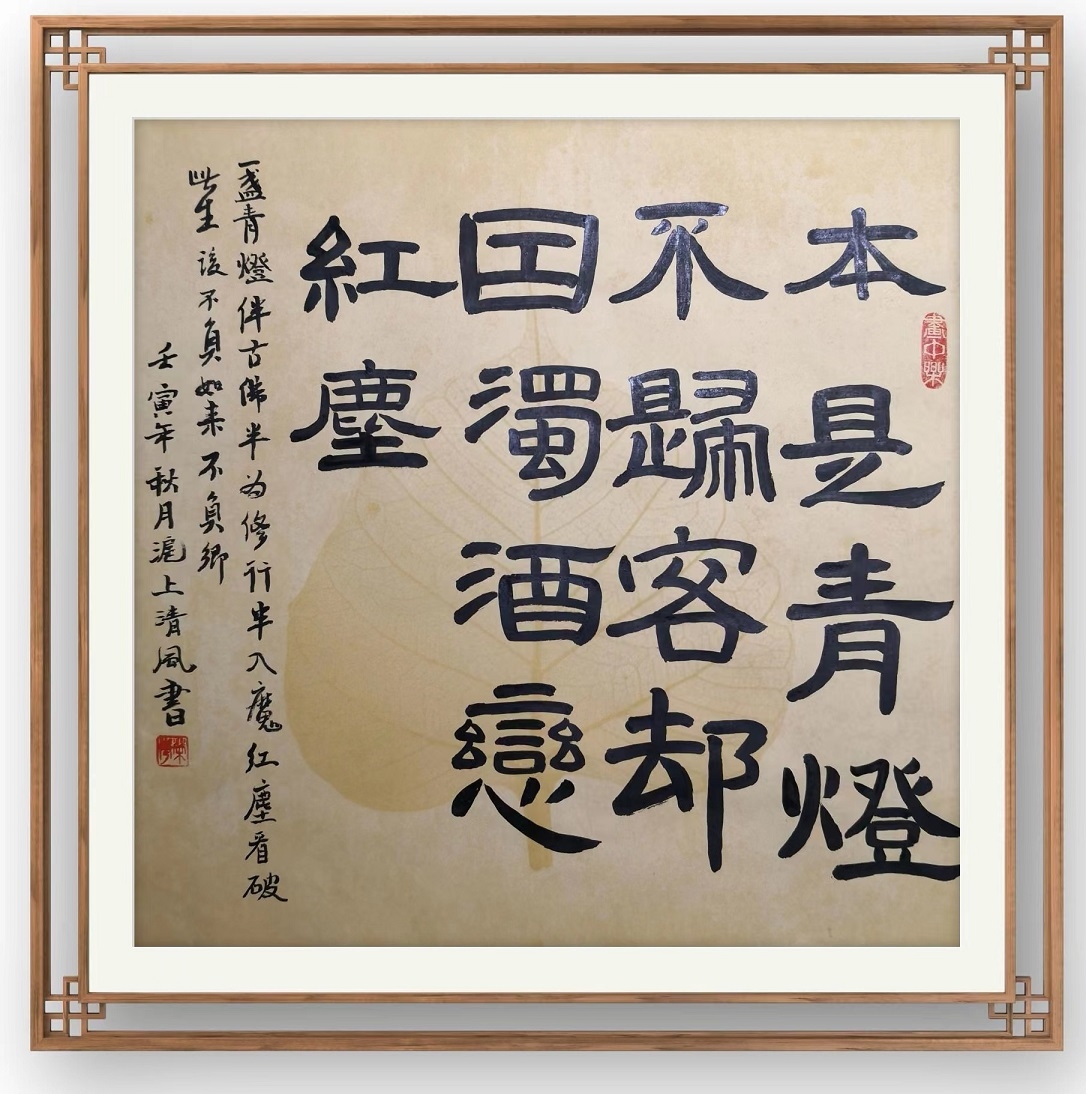 本是青燈
不歸客却
因濁酒戀
紅塵
一盞青燈伴古佛半为修行半入魔红塵看破
此生该不負如来不負卿
壬寅年秋月滬上清風書